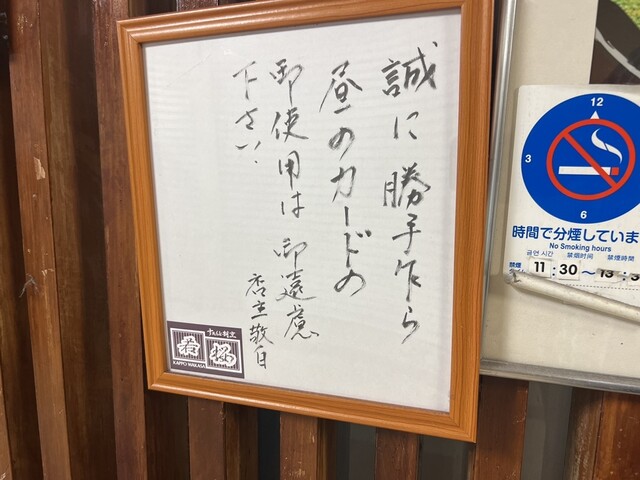 誠に勝手乍ら
昼のカードの
御使用は御遠慮
下さい.
店主敬白
KAPPO WAKASA
12
3
6
時間で分煙していま
No Smoking hours
금연 시간
禁烟时间
禁煙時間
11:30～13:3